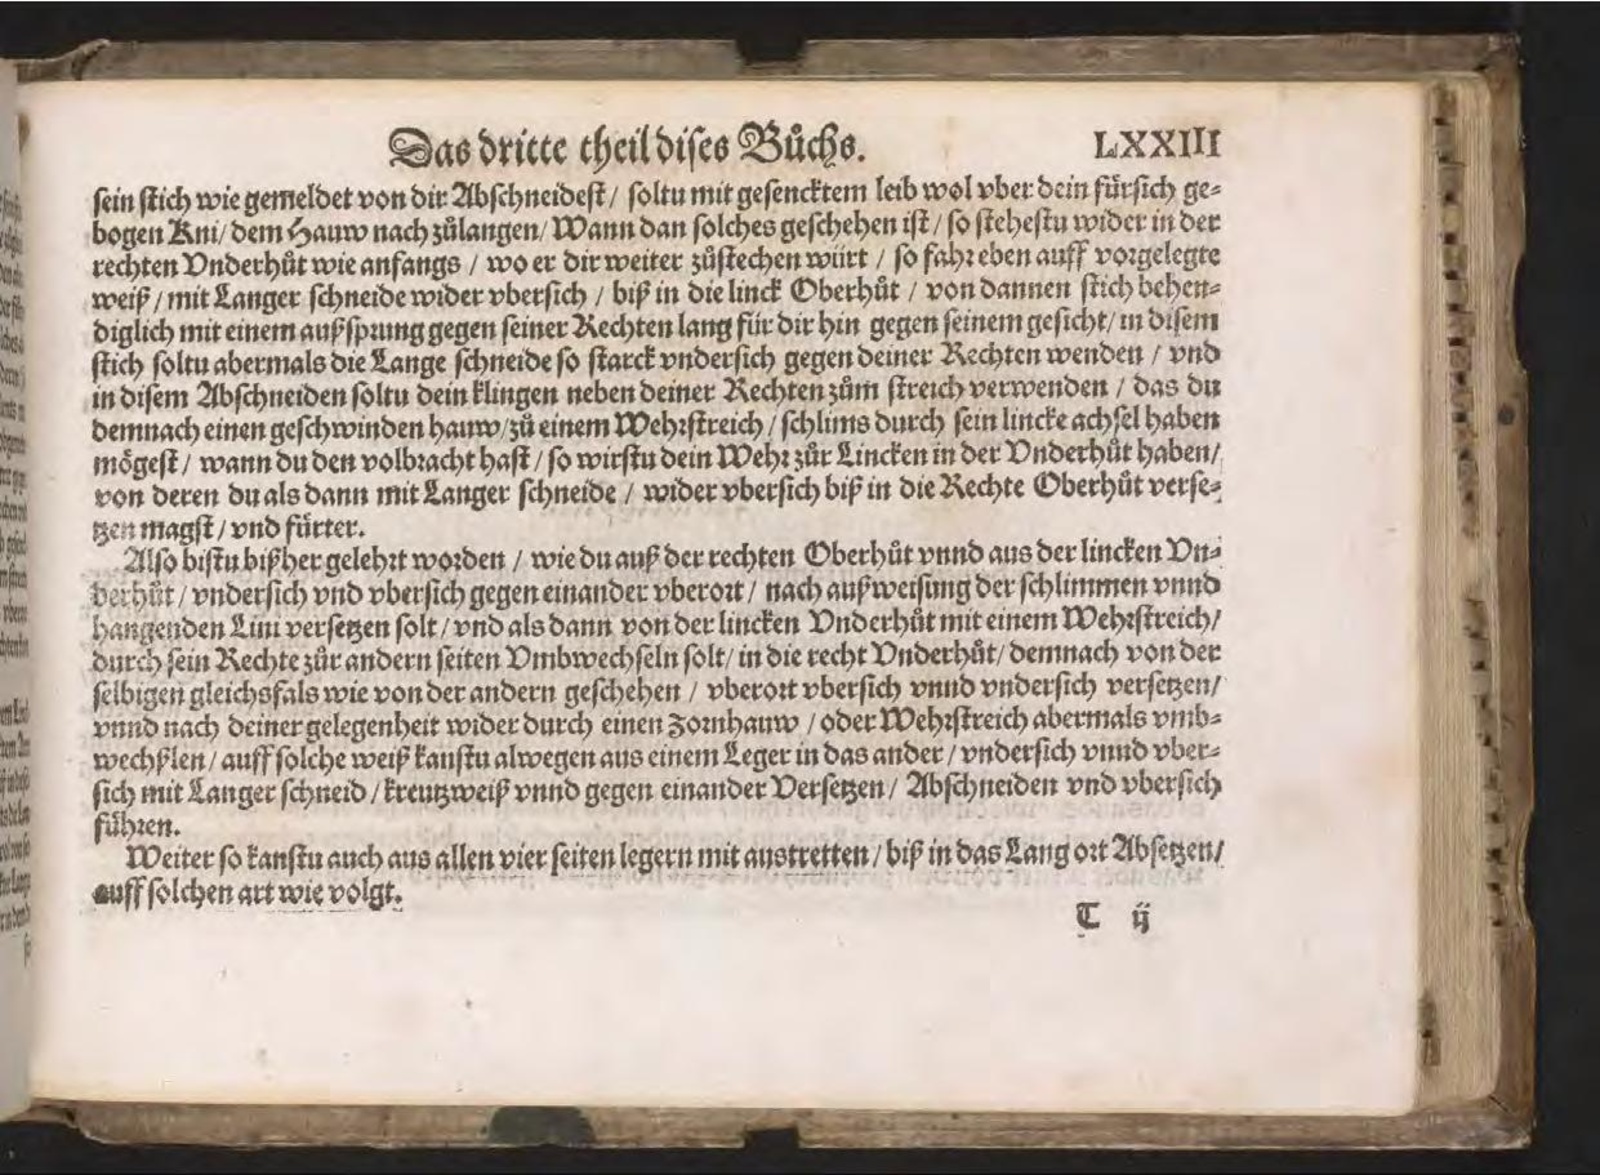 Das dritte theil dises Bůchs. LXXIII
sein stich wie gemeldet von dir Abschneidest / soltu mit gesencktem leib wol vber dein fürsich ge⸗
bogen Kni / dem Hauw nach zůlangen / Wann dan solches geschehen ist / so stehestu wider in der
rechten Vnderhůt wie anfangs / wo er dir weiter zůstechen würt / so fahr eben auff vorgelegte
weiß / mit Langer schneide wider vbersich / biß in die linck Oberhůt / von dannen stich behen⸗
diglich mit einem außsprung gegen seiner Rechten lang für dir hin gegen seinem gesicht / in disem
stich soltu abermals die Lange schneide so starck vndersich gegen deiner Rechten wenden / vnd
in disem Abschneiden soltu dein klingen neben deiner Rechten zům streich verwenden / das du
demnach einen geschwinden hauw / zů einem Wehrstreich / schlims durch sein lincke achsel haben
mögest / wann du den volbracht hast / so wirstu dein Wehr zůr Lincken in der Vnderhůt haben /
von deren du als dann mit Langer schneide / wider vbersich biß in die Rechte Oberhůt verse⸗
tzen magst / vnd fürter.
Also bistu bißher gelehrt worden / wie du auß der rechten Oberhůt vnnd aus der lincken Vn⸗
derhůt / vndersich vnd vbersich gegen einander vberort / nach außweisung der schlimmen vnnd
hangenden Lini versetzen solt / vnd als dann von der lincken Vnderhůt mit einem Wehrstreich /
durch sein Rechte zůr andern seiten Vmbwechseln solt / in die recht Vnderhůt / demnach von der
selbigen gleichsfals wie von der andern geschehen / vberort vbersich vnnd vndersich versetzen /
vnnd nach deiner gelegenheit wider durch einen Zornhauw / oder Wehrstreich abermals vmb⸗
wechßlen / auff solche weiß kanstu alwegen aus einem Leger in das ander / vndersich vnnd vber⸗
sich mit Langer schneid / kreutzweiß vnnd gegen einander Versetzen / Abschneiden vnd vbersich
führen.
Weiter so kanstu auch aus allen vier seiten legern mit austretten / biß in das Lang ort Absetzen /
auff solchen art wie volgt.
T ij